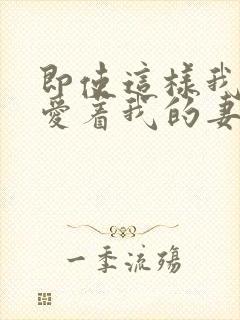 即使這樣我
愛着我的妻
一季流殤